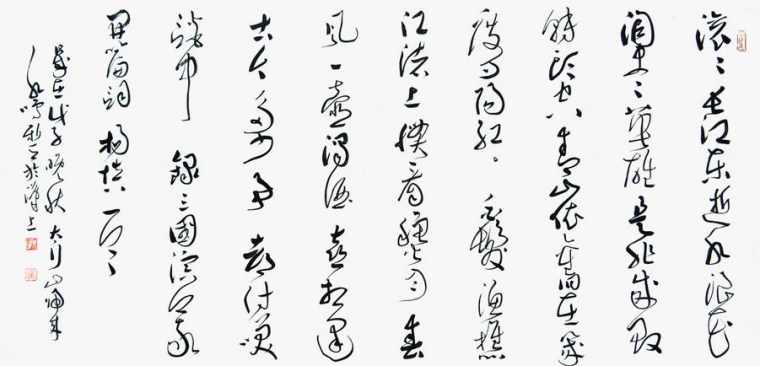 滚〻长江东逝水浪花
淘尽英雄是非成败
转头空青山依旧在几
度夕阳红〻白髮渔樵
江渚上惯看秋月春
风一壶浊酒喜相逢
古今多少事都付笑
谈中 録三國演义
开篇词 杨慎
岁在戊子晚秋太行山